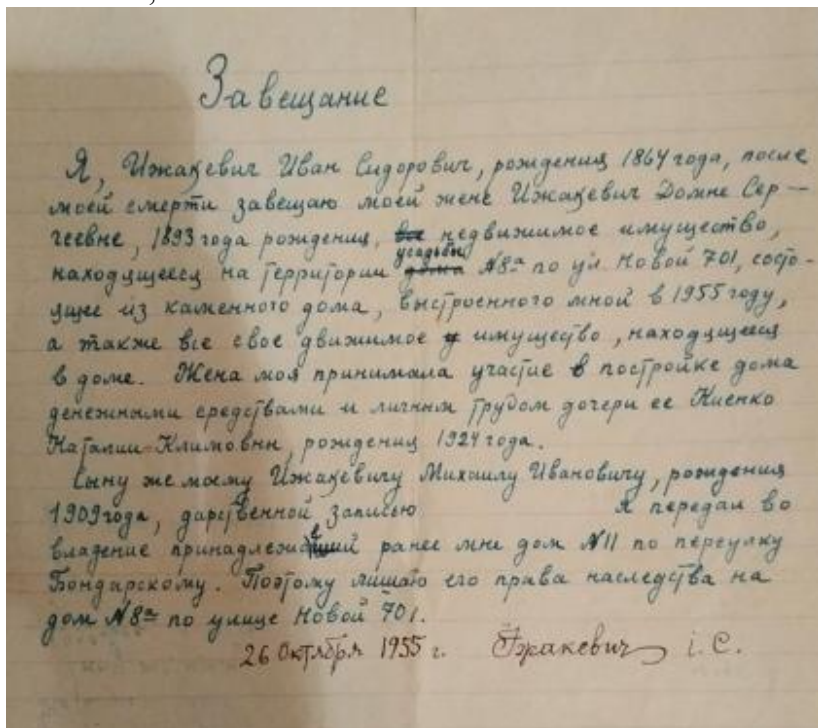 Завещание
Я, Ижакевич Иван Сидорович, рождения 1864 года, после
моей смерти завещаю моей жене Ижакевич Домне Сер-
геевне, 1893 года рождения, все недвижимое имущество,
усадьбы
находящееся на территории дома №8а по ул. Новой 701, состо-
ящее из каменного дома, выстроенного мной в 1955 году,
а также все свое движимое имущество, находящееся
в доме. Жена моя принимала участие в постройке дома
денежными средствами и личным трудом дочери ее Киенко
Наталии Климовны, рождения 1924 года.
Сыну же моему Ижакевичу Михаилу Ивановичу, рождения
1909 года, дарственной записью я передал во
владение ранее мне дом №11 по переулку
Бондарскому. Поэтому лишаю его права наследства на
дом №8а по улице Новой 701.
26 Октября 1955 г. Їжакевич І. С.